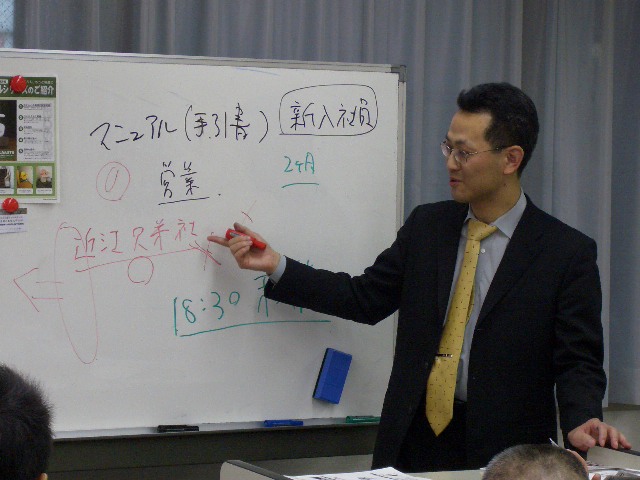 のご紹介
マニュアル(手引書) 新入社員
① 営業
2ヶ月
近江兄弟社
18:30